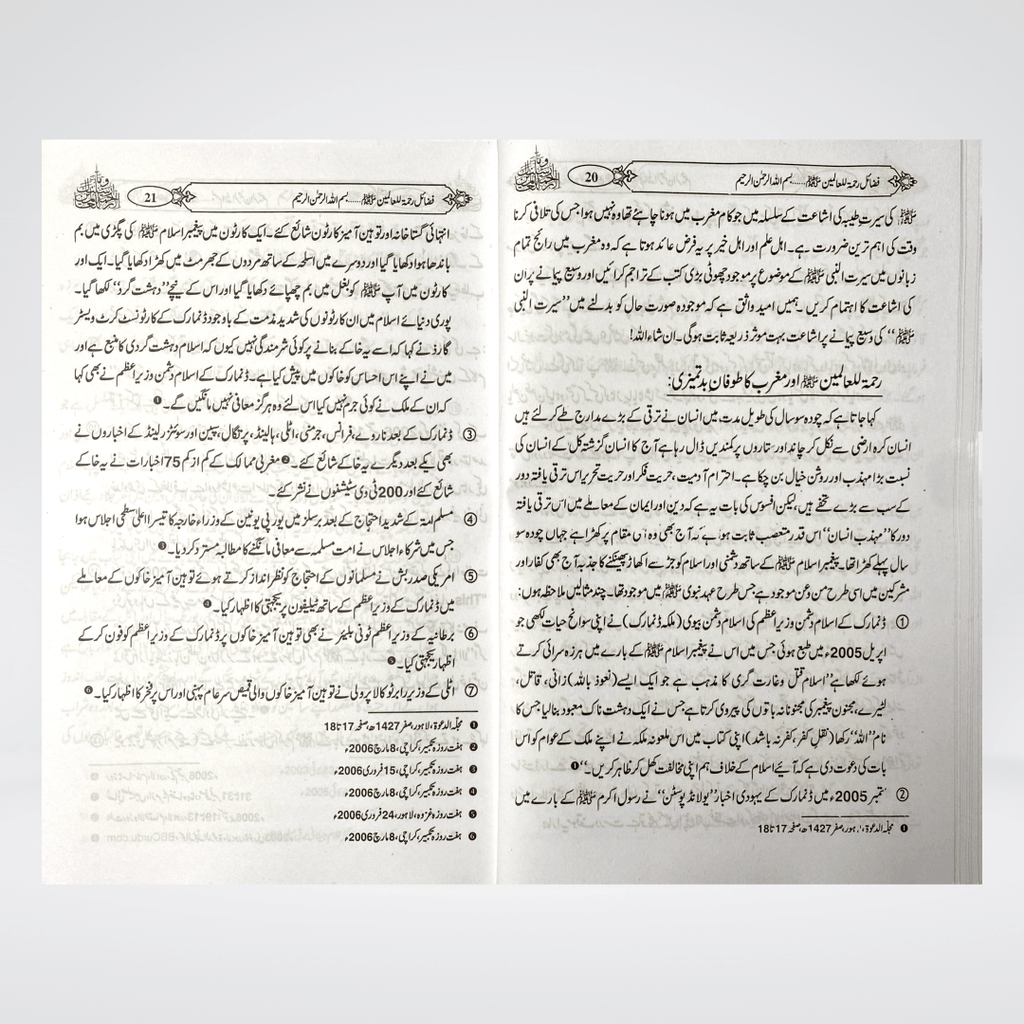 فضائل رحمۃ للعالمین ﷺ.....بسم اللہ الرحمٰن الرحیم
20
ﷺ کی سیرتِ طیبہ کی اشاعت کے سلسلہ میں جو کام مغرب میں ہونا چاہئے تھا وہ نہیں ہوا جس کی تلافی کرنا
وقت کی اہم ترین ضرورت ہے۔ اہل علم اور اہل خیر پر یہ فرض عائد ہوتا ہے کہ وہ مغرب میں رائج تمام
زبانوں میں سیرت النبی ﷺ کے موضوع پر موجود چھوٹی بڑی کتب کے تراجم کرائیں اور وسیع پیمانے پر ان
کی اشاعت کا اہتمام کریں۔ ہمیں امید واثق ہے کہ موجودہ صورت حال کو بدلنے میں ”سیرت النبی
ﷺ“ کی وسیع پیمانے پر اشاعت بہت موثر ذریعہ ثابت ہوگی۔ ان شاء اللہ!
رحمۃ للعالمین ﷺ اور مغرب کا طوفان بدتمیزی:
کہا جاتا ہے کہ چودہ سو سال کی طویل مدت میں انسان نے ترقی کے بڑے مدارج طے کر لئے ہیں
انسان کرہ ارضی سے نکل کر چاند اور ستاروں پر کمندیں ڈال رہا ہے آج کا انسان گزشتہ کل کے انسان کی
نسبت بڑا مہذب اور روشن خیال بن چکا ہے۔ احترام آدمیت، حریت فکر اور حریت تحریر اس ترقی یافتہ دور
کے سب سے بڑے تحفے ہیں، لیکن افسوس کی بات یہ ہے کہ دین اور ایمان کے معاملے میں اس ترقی یافتہ
دور کا ”مہذب انسان“ اس قدر متعصب ثابت ہوا ہے کہ آج بھی وہ اسی مقام پر کھڑا ہے جہاں چودہ سو
سال پہلے کھڑا تھا۔ پیغمبر اسلام ﷺ کے ساتھ دشمنی اور اسلام کو جڑ سے اکھاڑ پھینکنے کا جذبہ آج بھی کفار اور
مشرکین میں اسی طرح من وعن موجود ہے جس طرح عہد نبوی ﷺ میں موجود تھا۔ چند مثالیں ملاحظہ ہوں:
① ڈنمارک کے اسلام دشمن وزیر اعظم کی اسلام دشمن بیوی (ملکہ ڈنمارک) نے اپنی سوانح حیات لکھی جو
اپریل 2005ء میں طبع ہوئی جس میں اس نے پیغمبر اسلام ﷺ کے بارے میں ہرزہ سرائی کرتے
ہوئے لکھا ہے ”اسلام قتل وغارت گری کا مذہب ہے جو ایک ایسے (نعوذ باللہ) زانی، قاتل،
لٹیرے، مجنون پیغمبر کی مجنونانہ باتوں کی پیروی کرتا ہے جس نے ایک دہشت ناک معبود بنالیا جس کا
نام ”اللہ“ رکھا (نقل کفر، کفر نہ باشد) اپنی کتاب میں اس ملعونہ ملکہ نے اپنے ملک کے عوام کو اس
بات کی دعوت دی ہے کہ آیئے اسلام کے خلاف ہم اپنی مخالفت کھل کر ظاہر کریں۔“❶
② ستمبر 2005ء میں ڈنمارک کے یہودی اخبار ”یولانڈ پوسٹن“ نے رسول اکرم ﷺ کے بارے میں
❶ مجلۃ الدعوۃ، لاہور، صفر 1427ھ، صفحہ 17 تا 18
فضائل رحمۃ للعالمین ﷺ.....بسم اللہ الرحمٰن الرحیم
21
انتہائی گستاخانہ اور توہین آمیز کارٹون شائع کئے۔ ایک کارٹون میں پیغمبر اسلام ﷺ کی پگڑی میں بم
باندھا ہوا دکھایا گیا اور دوسرے میں اسلحہ کے ساتھ مردوں کے جھرمٹ میں کھڑا دکھایا گیا۔ ایک اور
کارٹون میں آپ ﷺ کو بغل میں بم چھپائے دکھایا گیا اور اس کے نیچے ”دہشت گرد“ لکھا گیا۔
پوری دنیائے اسلام میں ان کارٹونوں کی شدید مذمت کے باوجود ڈنمارک کے کارٹونسٹ کرٹ ویسٹر
گارڈ نے کہا کہ اسے یہ خاکے بنانے پر کوئی شرمندگی نہیں کیوں کہ اسلام دہشت گردی کا منبع ہے اور
میں نے اپنے اس احساس کو خاکوں میں پیش کیا ہے۔ ڈنمارک کے اسلام دشمن وزیر اعظم نے بھی کہا
کہ ان کے ملک نے کوئی جرم نہیں کیا اس لئے وہ ہرگز معافی نہیں مانگیں گے۔❶
③ ڈنمارک کے بعد ناروے، فرانس، جرمنی، اٹلی، ہالینڈ، پرتگال، سپین اور سوئٹزرلینڈ کے اخباروں نے
بھی یکے بعد دیگرے یہ خاکے شائع کئے۔❷ مغربی ممالک کے کم از کم 75 اخبارات نے یہ خاکے
شائع کئے اور 200 ٹی وی سٹیشنوں نے نشر کئے۔
④ مسلم امۃ کے شدید احتجاج کے بعد برسلز میں یورپی یونین کے وزراء خارجہ کا تیسرا اعلیٰ سطحی اجلاس ہوا
جس میں شرکاء اجلاس نے امت مسلمہ سے معافی مانگنے کا مطالبہ مسترد کر دیا۔❸
⑤ امریکی صدر بش نے مسلمانوں کے احتجاج کو نظر انداز کرتے ہوئے توہین آمیز خاکوں کے معاملے
میں ڈنمارک کے وزیر اعظم کے ساتھ ٹیلیفون پر یکجہتی کا اظہار کیا۔❹
⑥ برطانیہ کے وزیر اعظم ٹونی بلیئر نے بھی توہین آمیز خاکوں پر ڈنمارک کے وزیر اعظم کو فون کر کے
اظہار یکجہتی کیا۔❺
⑦ اٹلی کے وزیر رابرٹو کالا پرولی نے توہین آمیز خاکوں والی قمیص سرعام پہنی اور اس پر فخر کا اظہار کیا۔❻
❶ مجلۃ الدعوۃ، لاہور، صفر 1427ھ، صفحہ 17 تا 18
❷ ہفت روزہ تکبیر، کراچی، 8 مارچ 2006ء
❸ ہفت روزہ تکبیر، کراچی، 15 فروری 2006ء
❹ ہفت روزہ تکبیر، کراچی، 8 مارچ 2006ء
❺ ہفت روزہ غزوہ، لاہور، 24 فروری 2006ء
❻ ہفت روزہ تکبیر، کراچی، 8 مارچ 2006ء